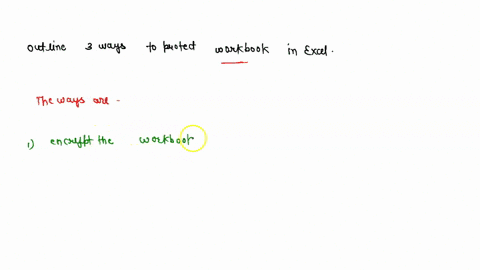 outline 3 ways to protect workbook in Excel.
The ways are -
1) encrypt the workbook